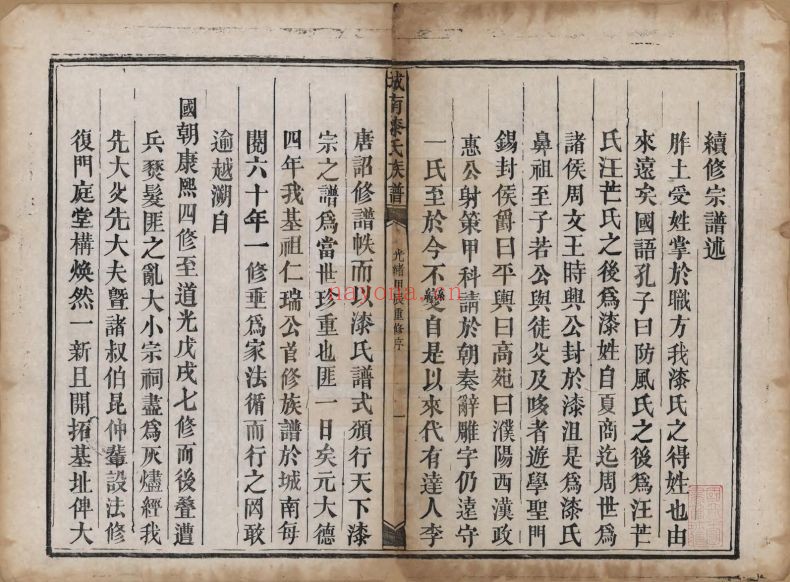 續修宗譜述
胙土受姓掌於職方我漆氏之得姓也由
來遠矣國語孔子曰防風氏之後為汪芒
氏汪芒氏之後為漆姓自夏商迄周世為
諸侯周文王時與公封於漆沮是為漆氏
鼻祖至子若公與徒父及哆者遊學聖門
錫封侯爵曰平輿曰高苑曰濮陽西漢政
惠公射策甲科請於朝奏辭雕字仍遠守
一氏至於今不變自是以來代有達人李
城南漆氏族譜
光緒甲辰重修序
一
唐詔修譜帙而以漆氏譜式頒行天下漆
宗之譜為當世珍重也匪一日矣元大德
四年我基祖仁瑞公首修族譜於城南每
閱六十年一修垂為家法循而行之罔敢
逾越溯自
國朝康熙四修至道光戊戌七修而後疊遭
兵燹髮匪之亂大小宗祠盡為灰燼經我
先大父先大夫暨諸叔伯昆仲輩設法修
復門庭堂構煥然一新且開拓基址俾大
nayona.cn